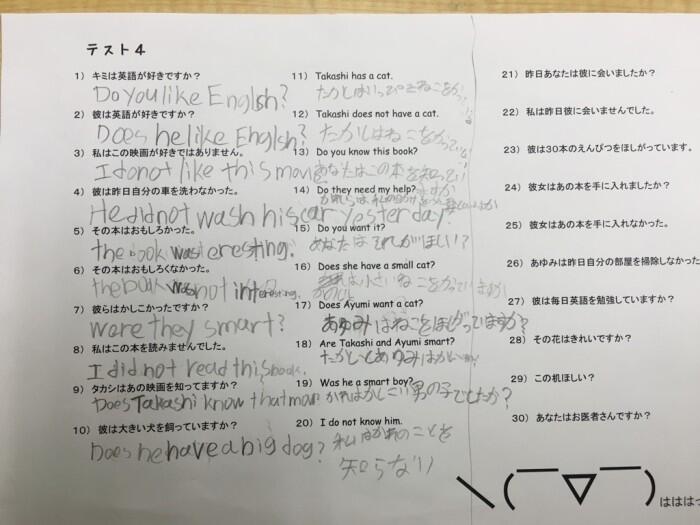 テスト4
1) キミは英語が好きですか？
Do you like Englsh?
2) 彼は英語が好きですか？
Does he like Englsh?
3) 私はこの映画が好きではありません。
I do not like this
4) 彼は昨日自分の車を洗わなかった。
He did not wash his car yesterday.
5) その本はおもしろかった。
the book
6) その本はおもしろくなかった。
the book not
7) 彼らはかしこかったですか？
Were they smart?
8) 私はこの本を読みませんでした。
I did not read this book.
9) タカシはあの映画を知ってますか？
Does Takashi know that
10) 彼は大きい犬を飼っていますか？
Does he have a big dog?
11) Takashi has a cat.
たかしはいっぴきねこをかっ
12) Takashi does not have a cat.
たかしはねこをかって
13) Do you know this book?
あなたはこの本を知って
14) Do they need my help?
15) Do you want it?
あなたはそれがほしい？
16) Does she have a small cat?
は小さいねこをかっていますか
17) Does Ayumi want a cat?
あゆみはねこをほしがっていますか？
18) Are Takashi and Ayumi smart?
たかしとあゆみはかしこい
19) Was he a smart boy?
かれはかしこい男の子でしたか？
20) I do not know him.
私はかれのことを
知らない
21) 昨日あなたは彼に会いましたか？
22) 私は昨日彼に会いませんでした。
23) 彼は30本のえんぴつをほしがっています。
24) 彼女はあの本を手に入れましたか？
25) 彼女はあの本を手に入れなかった。
26) あゆみは昨日自分の部屋を掃除しなかった
27) 彼は毎日英語を勉強していますか？
28) その花はきれいですか？
29) この机ほしい？
30) あなたはお医者さんですか？
＼(￣▽￣)/
はははっ